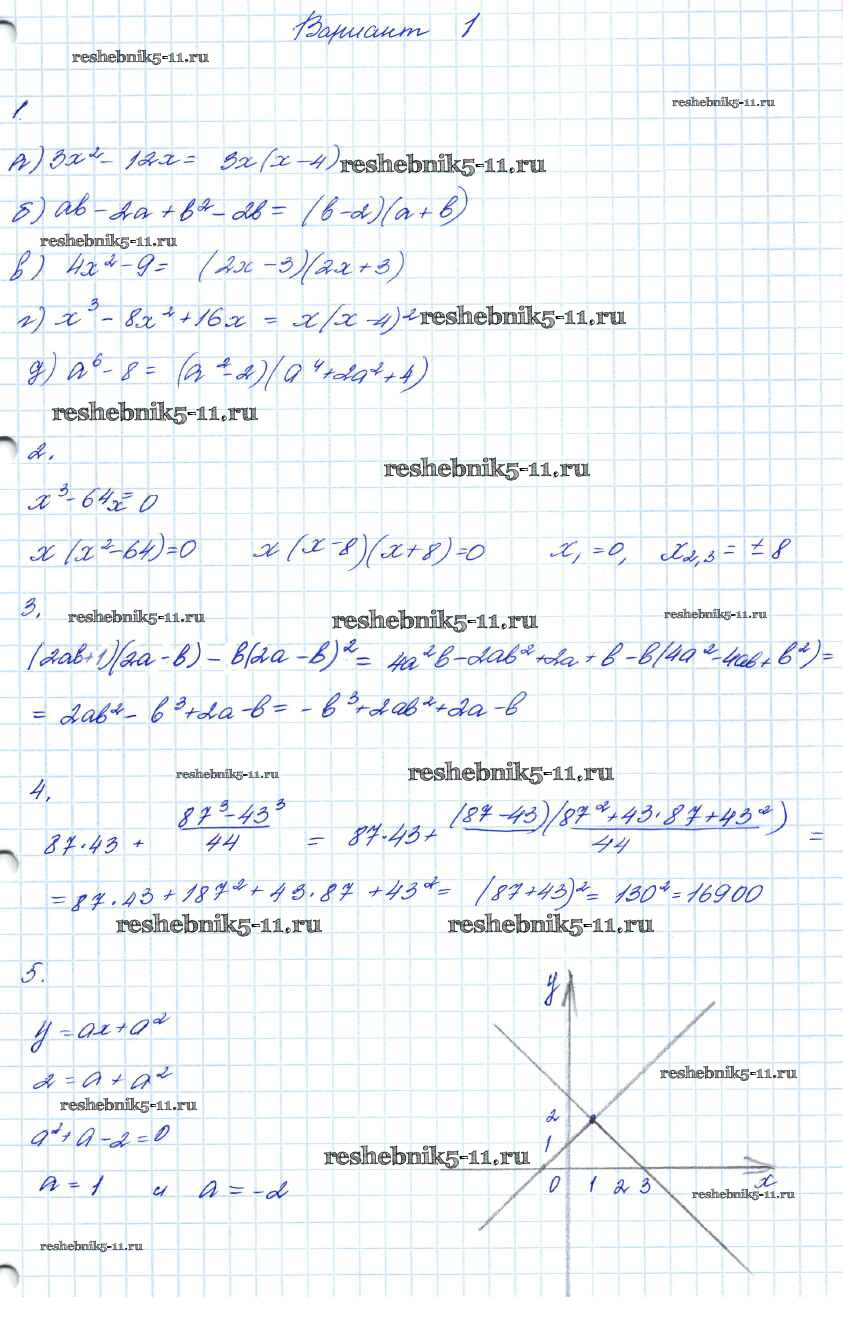 Вариант 1
reshebnik5-11.ru
reshebnik5-11.ru
1.
а) 3x² - 12x = 3x(x-4) reshebnik5-11.ru
б) ab - 2a + b² - 2b = (b-2)(a+b)
reshebnik5-11.ru
в) 4x² - 9 = (2x-3)(2x+3)
г) x³ - 8x² + 16x = x(x-4)² reshebnik5-11.ru
д) a⁶ - 8 = (a²-2)(a⁴+2a²+4)
reshebnik5-11.ru
2.
reshebnik5-11.ru
x³ - 64x = 0
x(x²-64)=0 x(x-8)(x+8)=0 x₁=0, x₂,₃=±8
3.
reshebnik5-11.ru reshebnik5-11.ru reshebnik5-11.ru
(2ab+1)(2a-b) - b(2a-b)² = 4a²b - 2ab² + 2a + b - b(4a²-4ab+b²) =
= 2ab² - b³ + 2a - b = -b³ + 2ab² + 2a - b
reshebnik5-11.ru reshebnik5-11.ru
4.
87·43 + (87³-43³)/44 = 87·43 + (87-43)(87²+43·87+43²)/44 =
= 87·43 + 187² + 43·87 + 43² = (87+43)² = 130² = 16900
reshebnik5-11.ru reshebnik5-11.ru
5.
y = ax + a²
2 = a + a²
reshebnik5-11.ru
a² + a - 2 = 0
a = 1 и a = -2
reshebnik5-11.ru
y
reshebnik5-11.ru
2
1
reshebnik5-11.ru
0 1 2 3 x
reshebnik5-11.ru